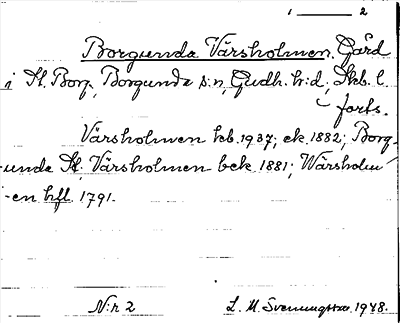 1 2
Borgunda Vårsholmen. Gård
i St. Borg., Borgunda s:n, Gudh. h:d, Skb. l.
forts.
Vårsholmen kb. 1937; ek. 1882; Borg-
unda St. Vårsholmen bek 1881; Wårsholm
-en hfl. 1791.
N:r 2 L. M. Svenungsson. 1948.